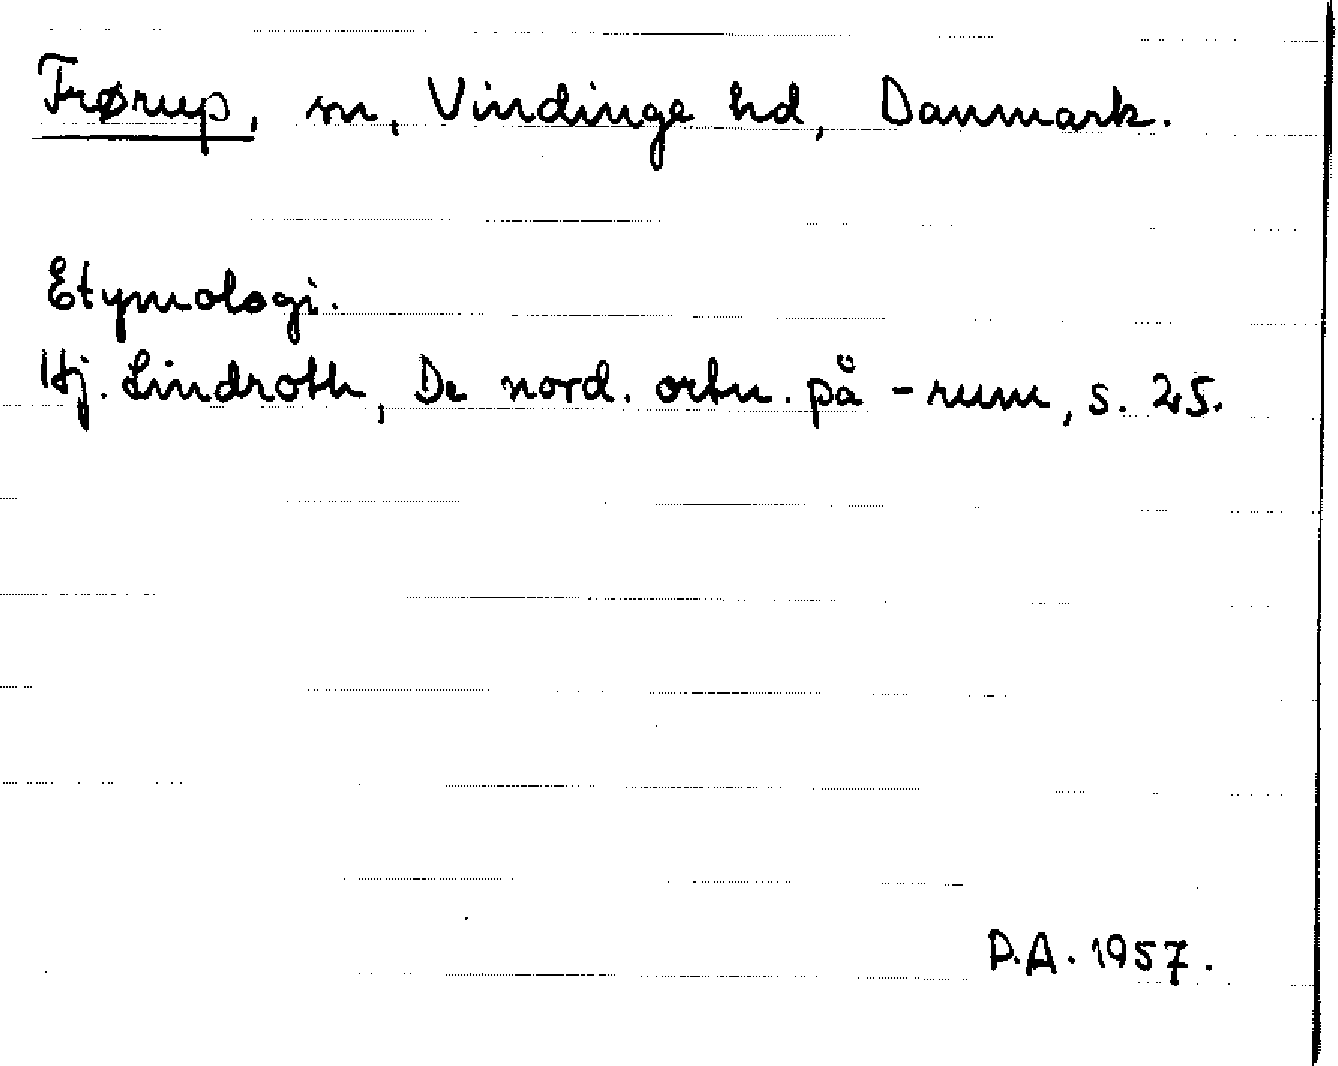 Frørup, sn, Vindinge hd, Danmark.
Etymologi.
Hj. Lindroth, De nord. ortn. på -rum, s. 25.
D.A. 1957.